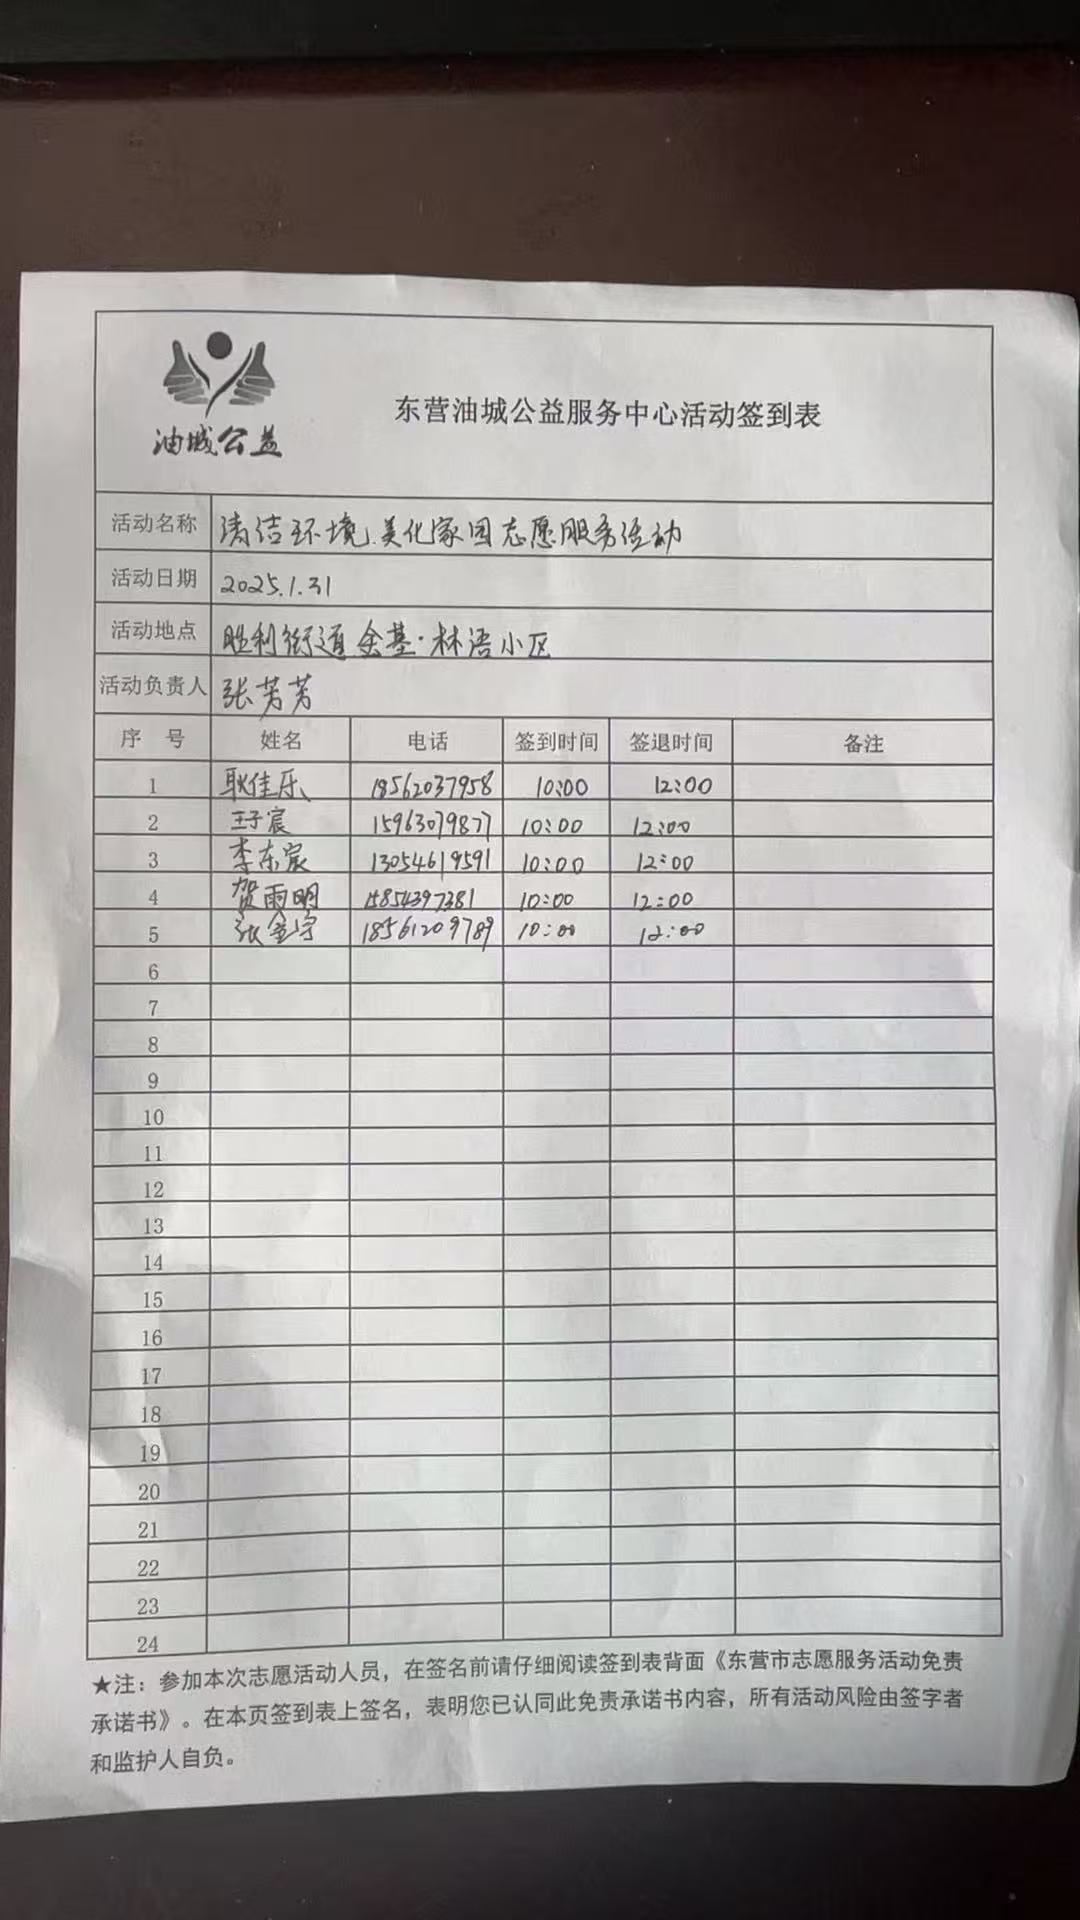 油城公益
东营油城公益服务中心活动签到表
活动名称 清洁环境、美化家园志愿服务活动
活动日期 2025.1.31
活动地点 胜利街道金基·林语小区
活动负责人 张芳芳
序 号 姓名 电话 签到时间 签退时间 备注
1 耿佳乐 18562037958 10:00 12:00
2 王子宸 15963079877 10:00 12:00
3 李东宸 13054619591 10:00 12:00
4 贺雨明 15854397381 10:00 12:00
5 张金宇 18561209789 10:00 12:00
6
7
8
9
10
11
12
13
14
15
16
17
18
19
20
21
22
23
24
★注：参加本次志愿活动人员，在签名前请仔细阅读签到表背面《东营市志愿服务活动免责
承诺书》。在本页签到表上签名，表明您已认同此免责承诺书内容，所有活动风险由签字者
和监护人自负。